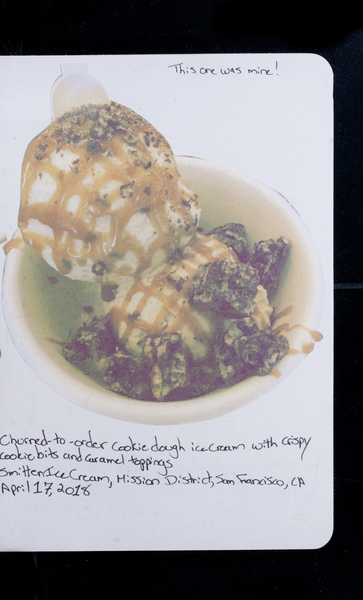 This one was mine!
Churned-to-order cookie dough ice cream with crispy
cookie bits and caramel toppings
Smitten Ice Cream, Mission District, San Francisco, CA
April 17, 2018